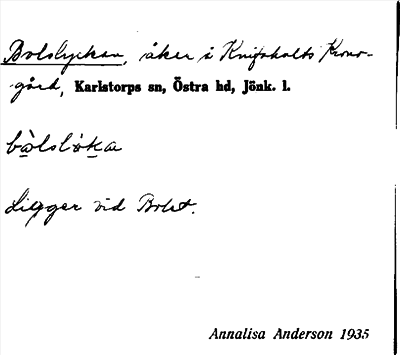 Bolslyckan, åker i Knifsholts Krono-
gård, Karlstorps sn, Östra hd, Jönk. l.
bòlslỳka
Ligger vid Bolet.
Annalisa Anderson 1935